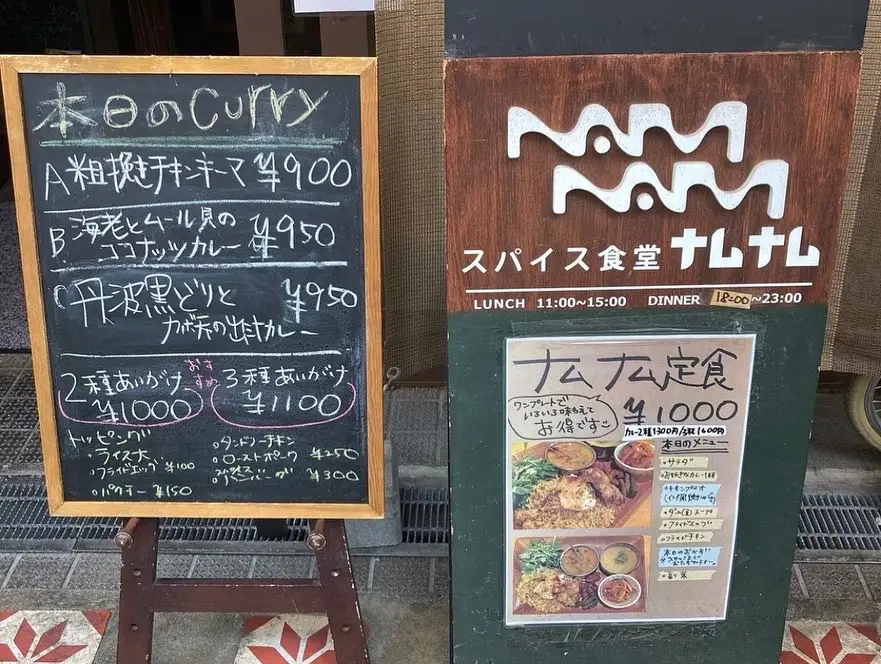 本日のCurry
A粗挽きチキンキーマ ¥900
B海老とムール貝の ¥950
ココナッツカレー
C丹波黒どりと ¥950
カボ天の出汁カレー
2種あいがけ ¥1000
おすすめ
3種あいがけ ¥1100
トッピング
・ライス大
・フライドエッグ ¥100
・パクチー ¥150
・タンドリーチキン
・ローストポーク ¥250
ハンバーグ ¥300
NAM
NAM
スパイス食堂 ナムナム
LUNCH 11:00~15:00 DINNER 18:00~23:00
ナムナム定食
ワンプレートで
いろいろ味わえて
お得です
¥1000
カレー2種1300円/3種1400円
本日のメニュー
・サラダ
・お好きなカレー1種
・ダル(豆)スープ
・フライドエッグ
・フライドチキン
本日のおかず